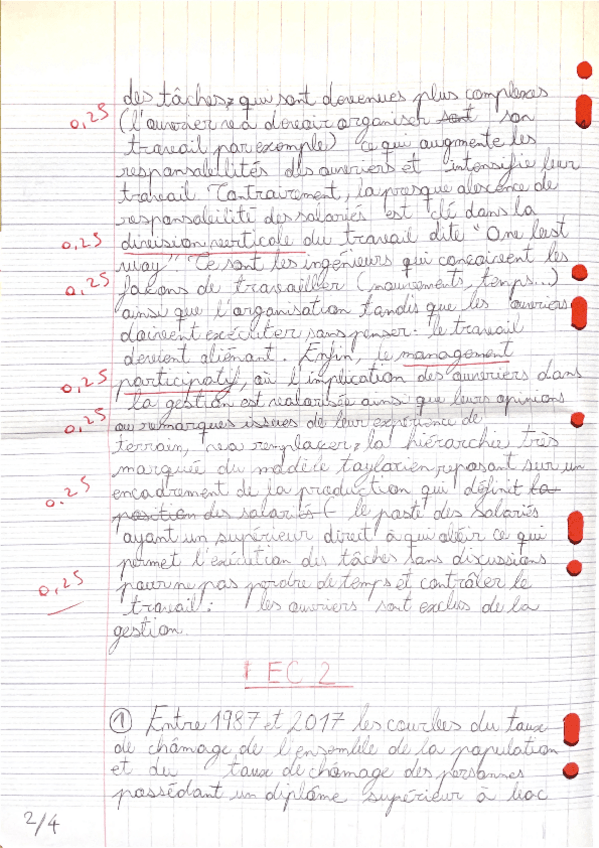 des tâches, qui sont devenues plus complexes
0,25
(l'ouvrier va devoir organiser sont son
travail par exemple) ce qui augmente les
responsabilités des ouvriers et intensifie leur
travail. Contrairement, la presque absence de
responsabilité des salariés est clé dans la
0,25
division verticale du travail dite "One best
way". Ce sont les ingénieurs qui concoivent les
0,25
façons de travailler (mouvements, temps...)
ainsi que l'organisation tandis que les ouvriers
doivent exécuter sans penser : le travail
devient aliénant. Enfin, le management
0,25
participatif, où l'implication des ouvriers dans
la gestion est valorisée ainsi que leurs opinions
0,25
ou remarques issues de leur expérience de
terrain, va remplacer, la hiérarchie très
marquée du modèle taylorien reposant sur un
0.25
encadrement de la production qui définit la
position des salariés ( le poste des salariés
ayant un supérieur direct à qui obéir ce qui
permet l'exécution des tâches sans discussions
0,25
pour ne pas perdre de temps et contrôler le
travail : les ouvriers sont exclus de la
gestion.
EC 2
① Entre 1987 et 2017 les courbes du taux
de chômage de l'ensemble de la population
et du taux de chômage des personnes
possédant un diplôme supérieur à bac
2/4